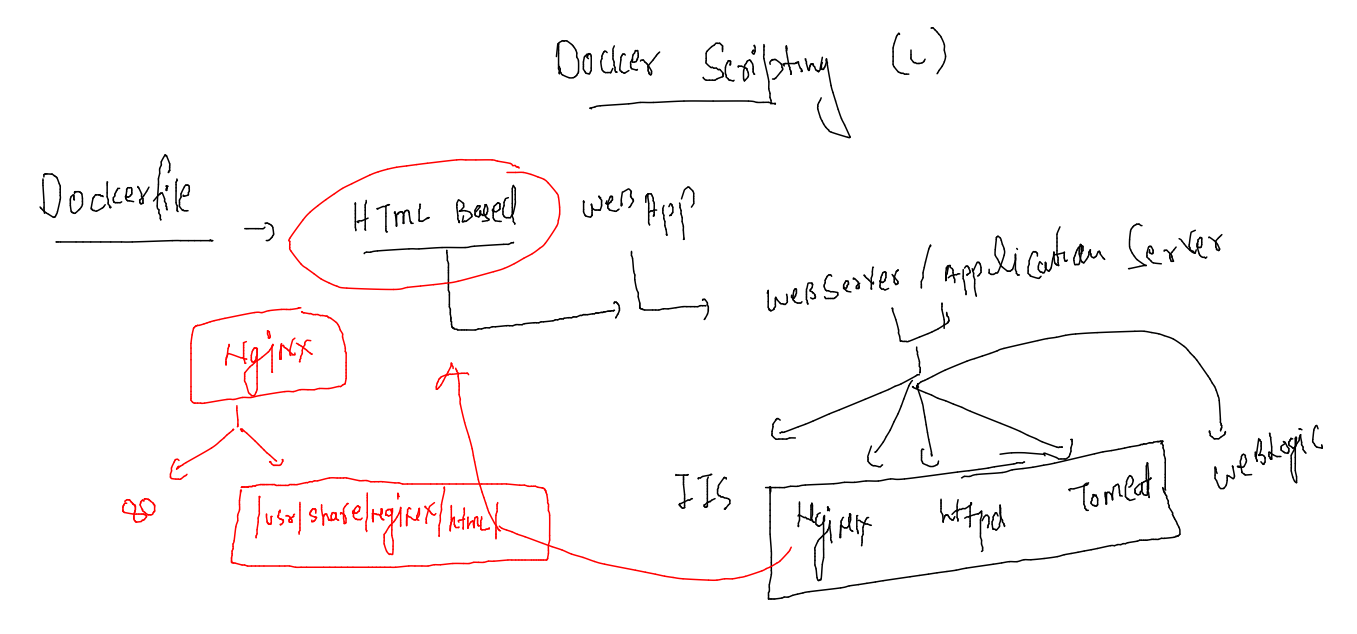 Docker Scripting (L)
Dockerfile → HTML Based Web App
Webserver / Application Server
Nginx
80
/usr/share/nginx/html/
IIS
Nginx httpd Tomcat
WebLogic